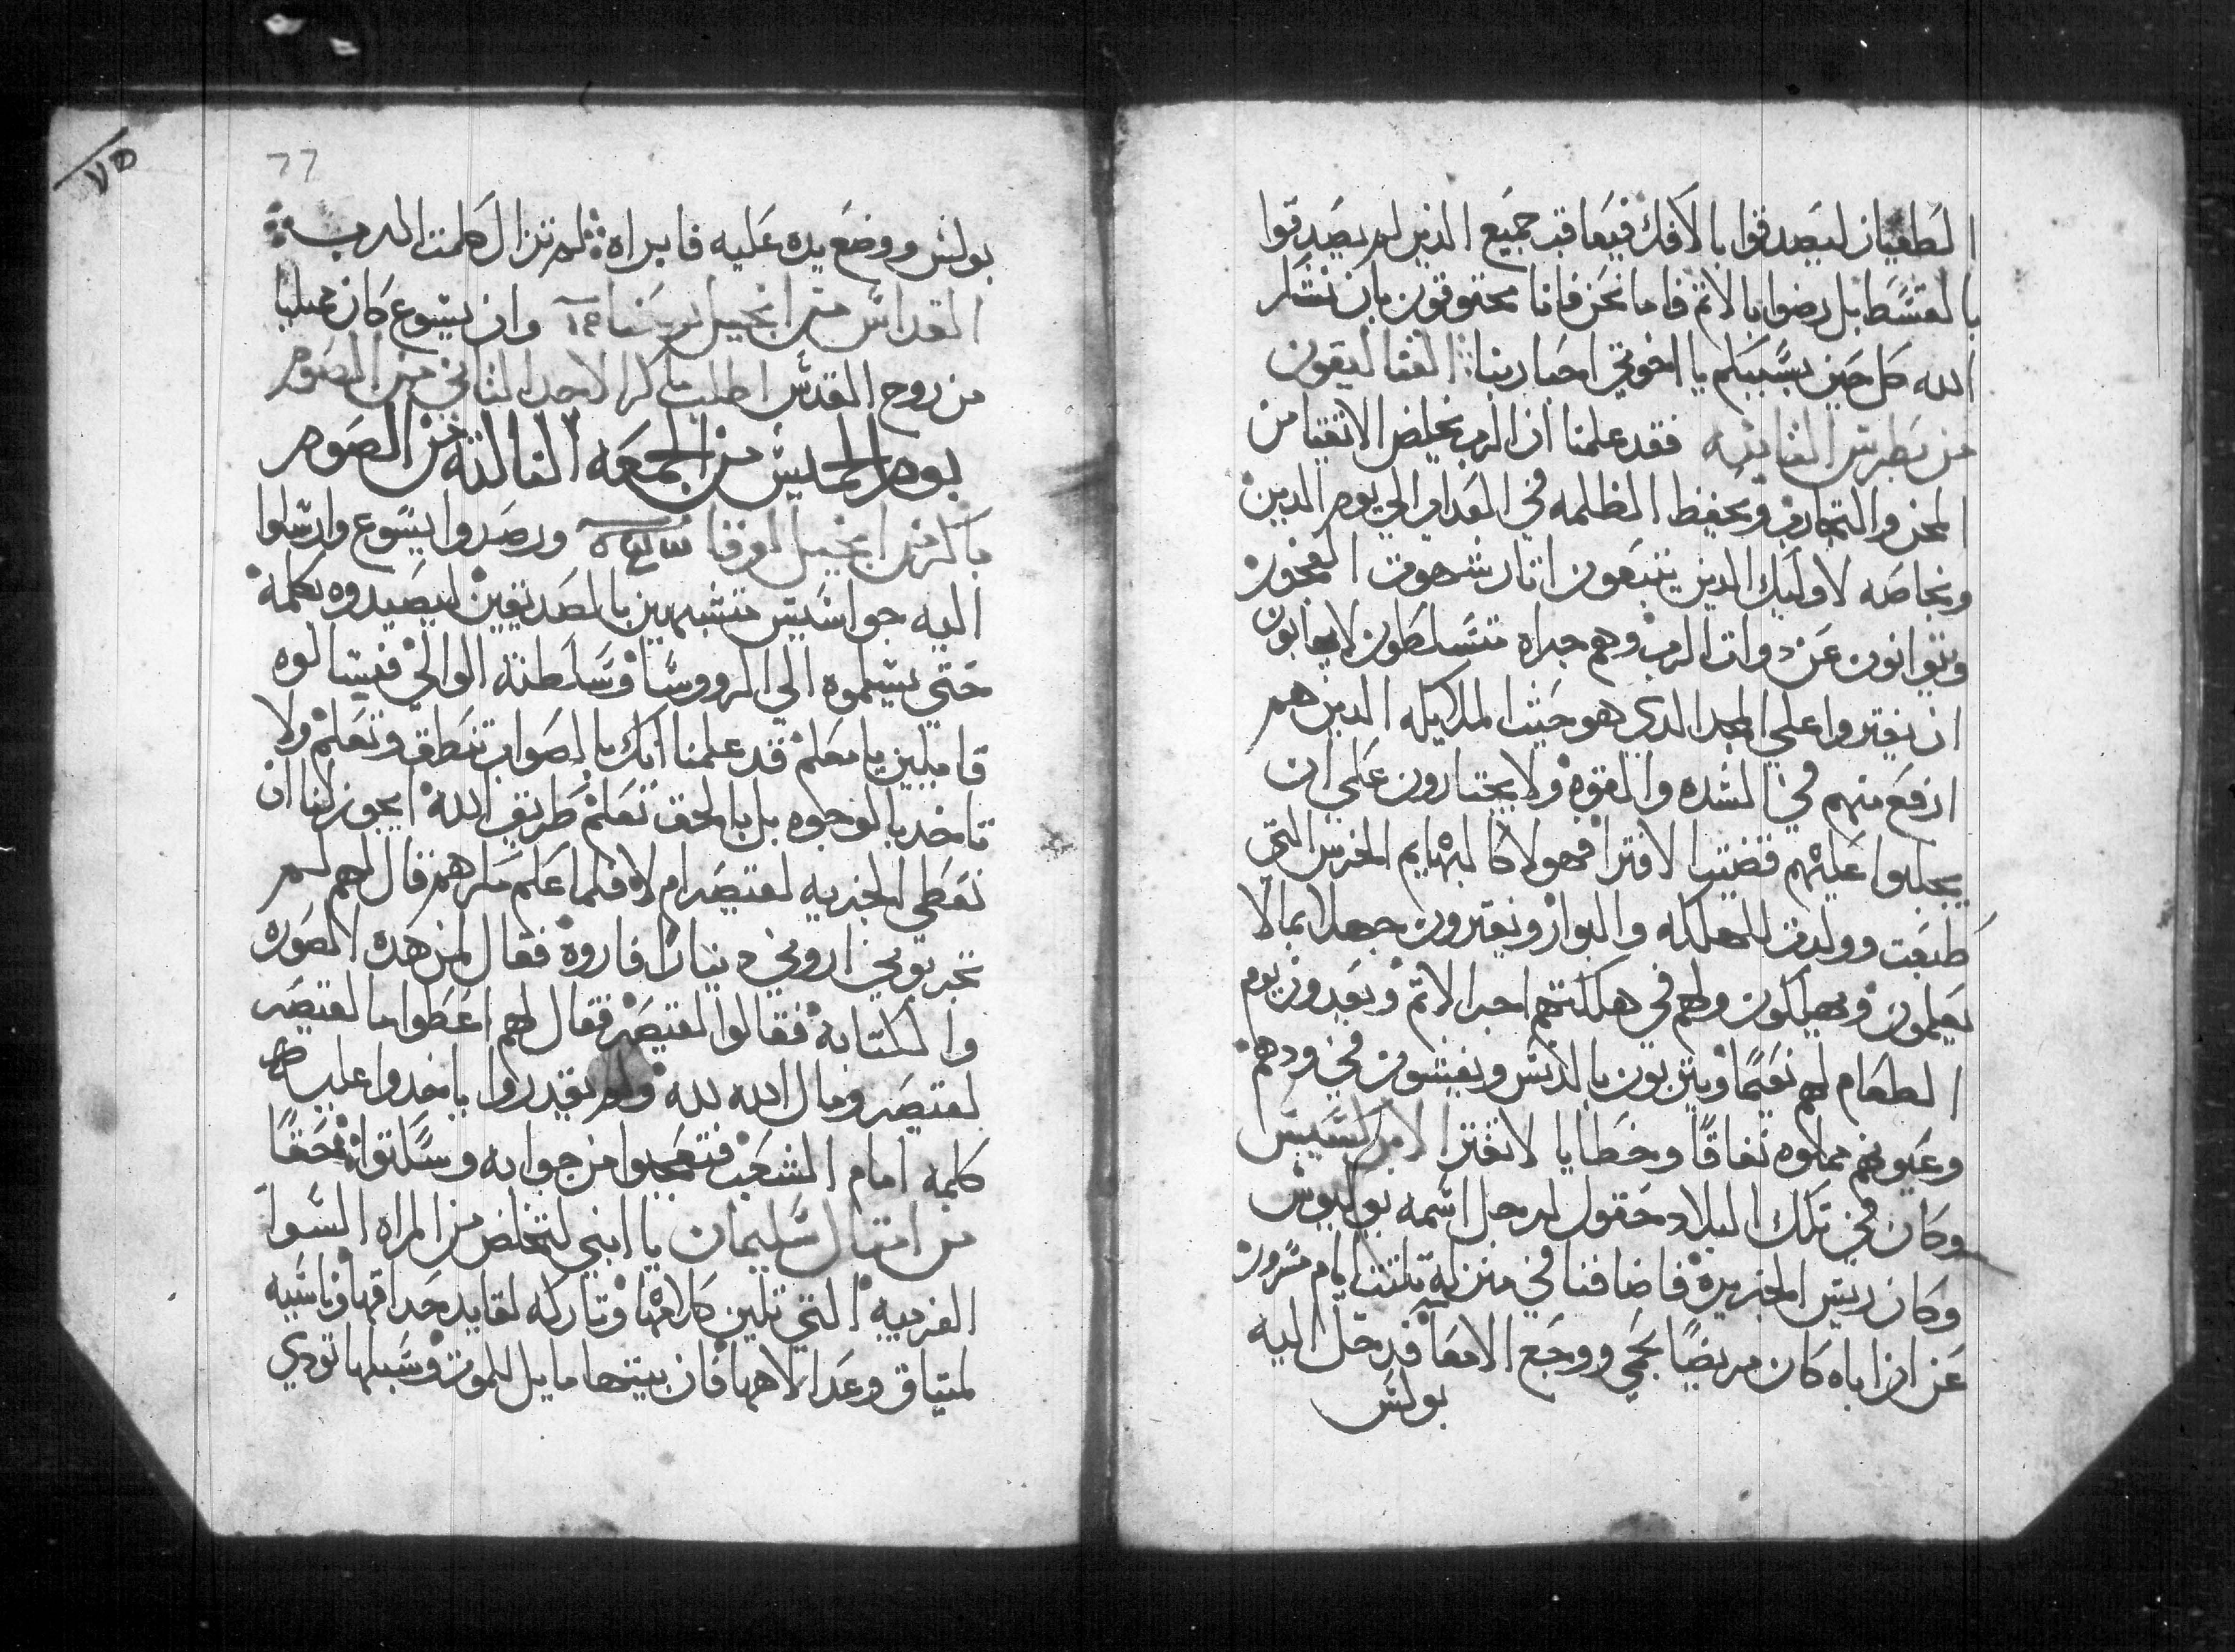 الطغيان ليصدقوا بالافك فيعاقب جميع الذين لم يصدقوا
بالقسط بل رضوا بالاثم فاما نحن فانا محقوقون بان نشكر
الله كل حين بسببكم يا اخوتي احبا ربنا القتاليقون
من بطرس الثانيه فقد علمنا ان الرب يخلص الاتقيا من
المحن والتجارب ويحفظ الظلمه في العداب الي يوم الدين
وبخاصه لاوليك الدين يتبعون اتار شهوت الفجور
ويتوانون عن دوات الرب وهم جراه متسلطون لا يهابون
ان يفتروا علي المجد الدي هو حيث الملايكه الدين هم
ارفع منهم في الشده والقوه ولا يجتارون علي ان
يجلبوا عليهم قضيت الافترا فهولا كالبهايم الخرس التي
طبعت وولدت للهلكه والبوار ويفترون جهلا بما لا
يعلمون ويهلكون ولهم في هلكتهم اجر الاتم ويعدون يوم
الطعام لهم نعيما ويتربون بالدنس ويفسون في ودهم
وعيونهم مملوه نفاقا وخطايا لا تفتر الابركسيس
وكان في تلك البلاد حقول لرجل اسمه بوليوس
وكان ريس الجزيره فاضافنا في منزله تلتت ايام مسرور
عن ان اباه كان مريضا بحمي ووجع الامعا فدخل اليه
بولس
٧٥
77
بولس ووضع يده عليه فابراه لم تزال كلمت الرب
القداس من انجيل وان يسوع كان ممليا
من روح القدس اطلب باكر الاحد التاني من الصوم
يوم الخميس من الجمعه التالته من الصوم
باكر من انجيل لوقا ورصدوا يسوع وارسلوا
اليه جواسيس متشبهين بالصديقين ليصيدوه بكلمه
حتي يسلموه الي الرووسا وسلطنة الوالي فيسالوه
قايلين يا معلم قد علمنا انك بالصواب تنطق وتعلم ولا
تاخد بالوجوه بل بالحق تعلم طريق الله ايجوز لنا ان
نعطي الجزيه لقيصر ام لا فلما علم مكرهم قال لهم لم
تجربوني اروني دينارا فاروه فقال لمن هده الصوره
والكتابه فقالوا لقيصر فقال لهم اعطوا ما لقيصر
لقيصر ومال الله لله ولم يقدروا ياخدوا عليه
كلمه امام الشعب فتعجبوا من جوابه وسكتوا حقا
من امتال سليمان يا ابني لتخلص من المراه السوا
الغريبه التي تلين كلامها وتاركه لقايد حداقتها وناسيه
لميتاق وعد الاهها فان بيتها مايل للموت وسبلها تودي